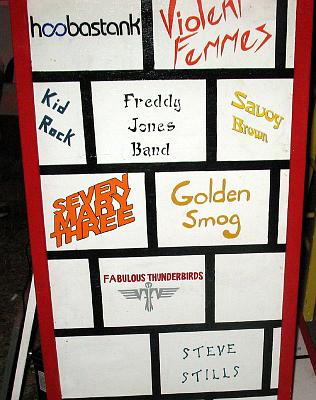 hoobastank
Violent
Femmes
Kid
Rock
Freddy
Jones
Band
Savoy
Brown
SEVEN
MARY
THREE
Golden
Smog
FABULOUS THUNDERBIRDS
STEVE
STILLS